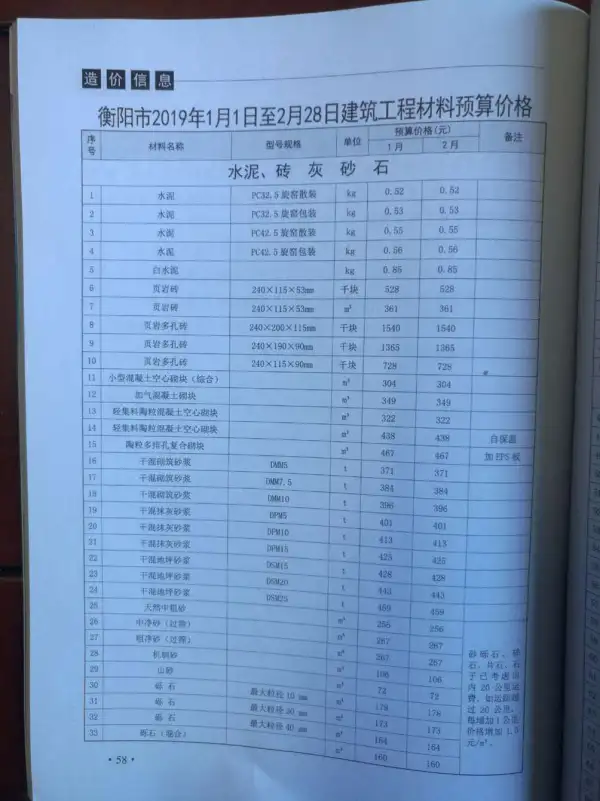 造价信息
衡阳市2019年1月1日至2月28日建筑工程材料预算价格
序号 材料名称 型号规格 单位 预算价格(元) 备注
1月 2月
水泥、砖 灰 砂 石
1 水泥 PC32.5旋窑散装 kg 0.52 0.52
2 水泥 PC32.5旋窑包装 kg 0.53 0.53
3 水泥 PC42.5旋窑散装 kg 0.55 0.55
4 水泥 PC42.5旋窑包装 kg 0.56 0.56
5 白水泥 kg 0.85 0.85
6 页岩砖 240×115×53mm 千块 528 528
7 页岩砖 240×115×53mm m³ 361 361
8 页岩多孔砖 240×200×115mm 千块 1540 1540
9 页岩多孔砖 240×190×90mm 千块 1365 1365
10 页岩多孔砖 240×115×90mm 千块 728 728
11 小型混凝土空心砌块（综合） m³ 304 304
12 加气混凝土砌块 m³ 349 349
13 轻集料陶粒混凝土空心砌块 m³ 322 322
14 轻集料陶粒混凝土空心砌块 m³ 438 438 自保温
15 陶粒多排孔复合砌块 m³ 467 467 加EPS板
16 干混砌筑砂浆 DMM5 t 371 371
17 干混砌筑砂浆 DMM7.5 t 384 384
18 干混砌筑砂浆 DMM10 t 396 396
19 干混抹灰砂浆 DPM5 t 401 401
20 干混抹灰砂浆 DPM10 t 413 413
21 干混抹灰砂浆 DPM15 t 425 425
22 干混地坪砂浆 DSM15 t 428 428
23 干混地坪砂浆 DSM20 t 443 443
24 干混地坪砂浆 DSM25 t 459 459
25 天然中粗砂 m³ 256 256
26 中净砂（过筛） m³ 267 267
27 粗净砂（过筛） m³ 267 267
28 机制砂 m³ 106 106
29 山砂 m³ 72 72
30 砾石 最大粒径10mm m³ 178 178
31 砾石 最大粒径20mm m³ 173 173
32 砾石 最大粒径40mm m³ 164 164
33 砾石（混合） m³ 160 160
砂砾石、
石、片石、石
子已考虑
内20公里运
费，如运距超
过20公里，
每增加1公里
价格增加1.5
元/m³。
·58·